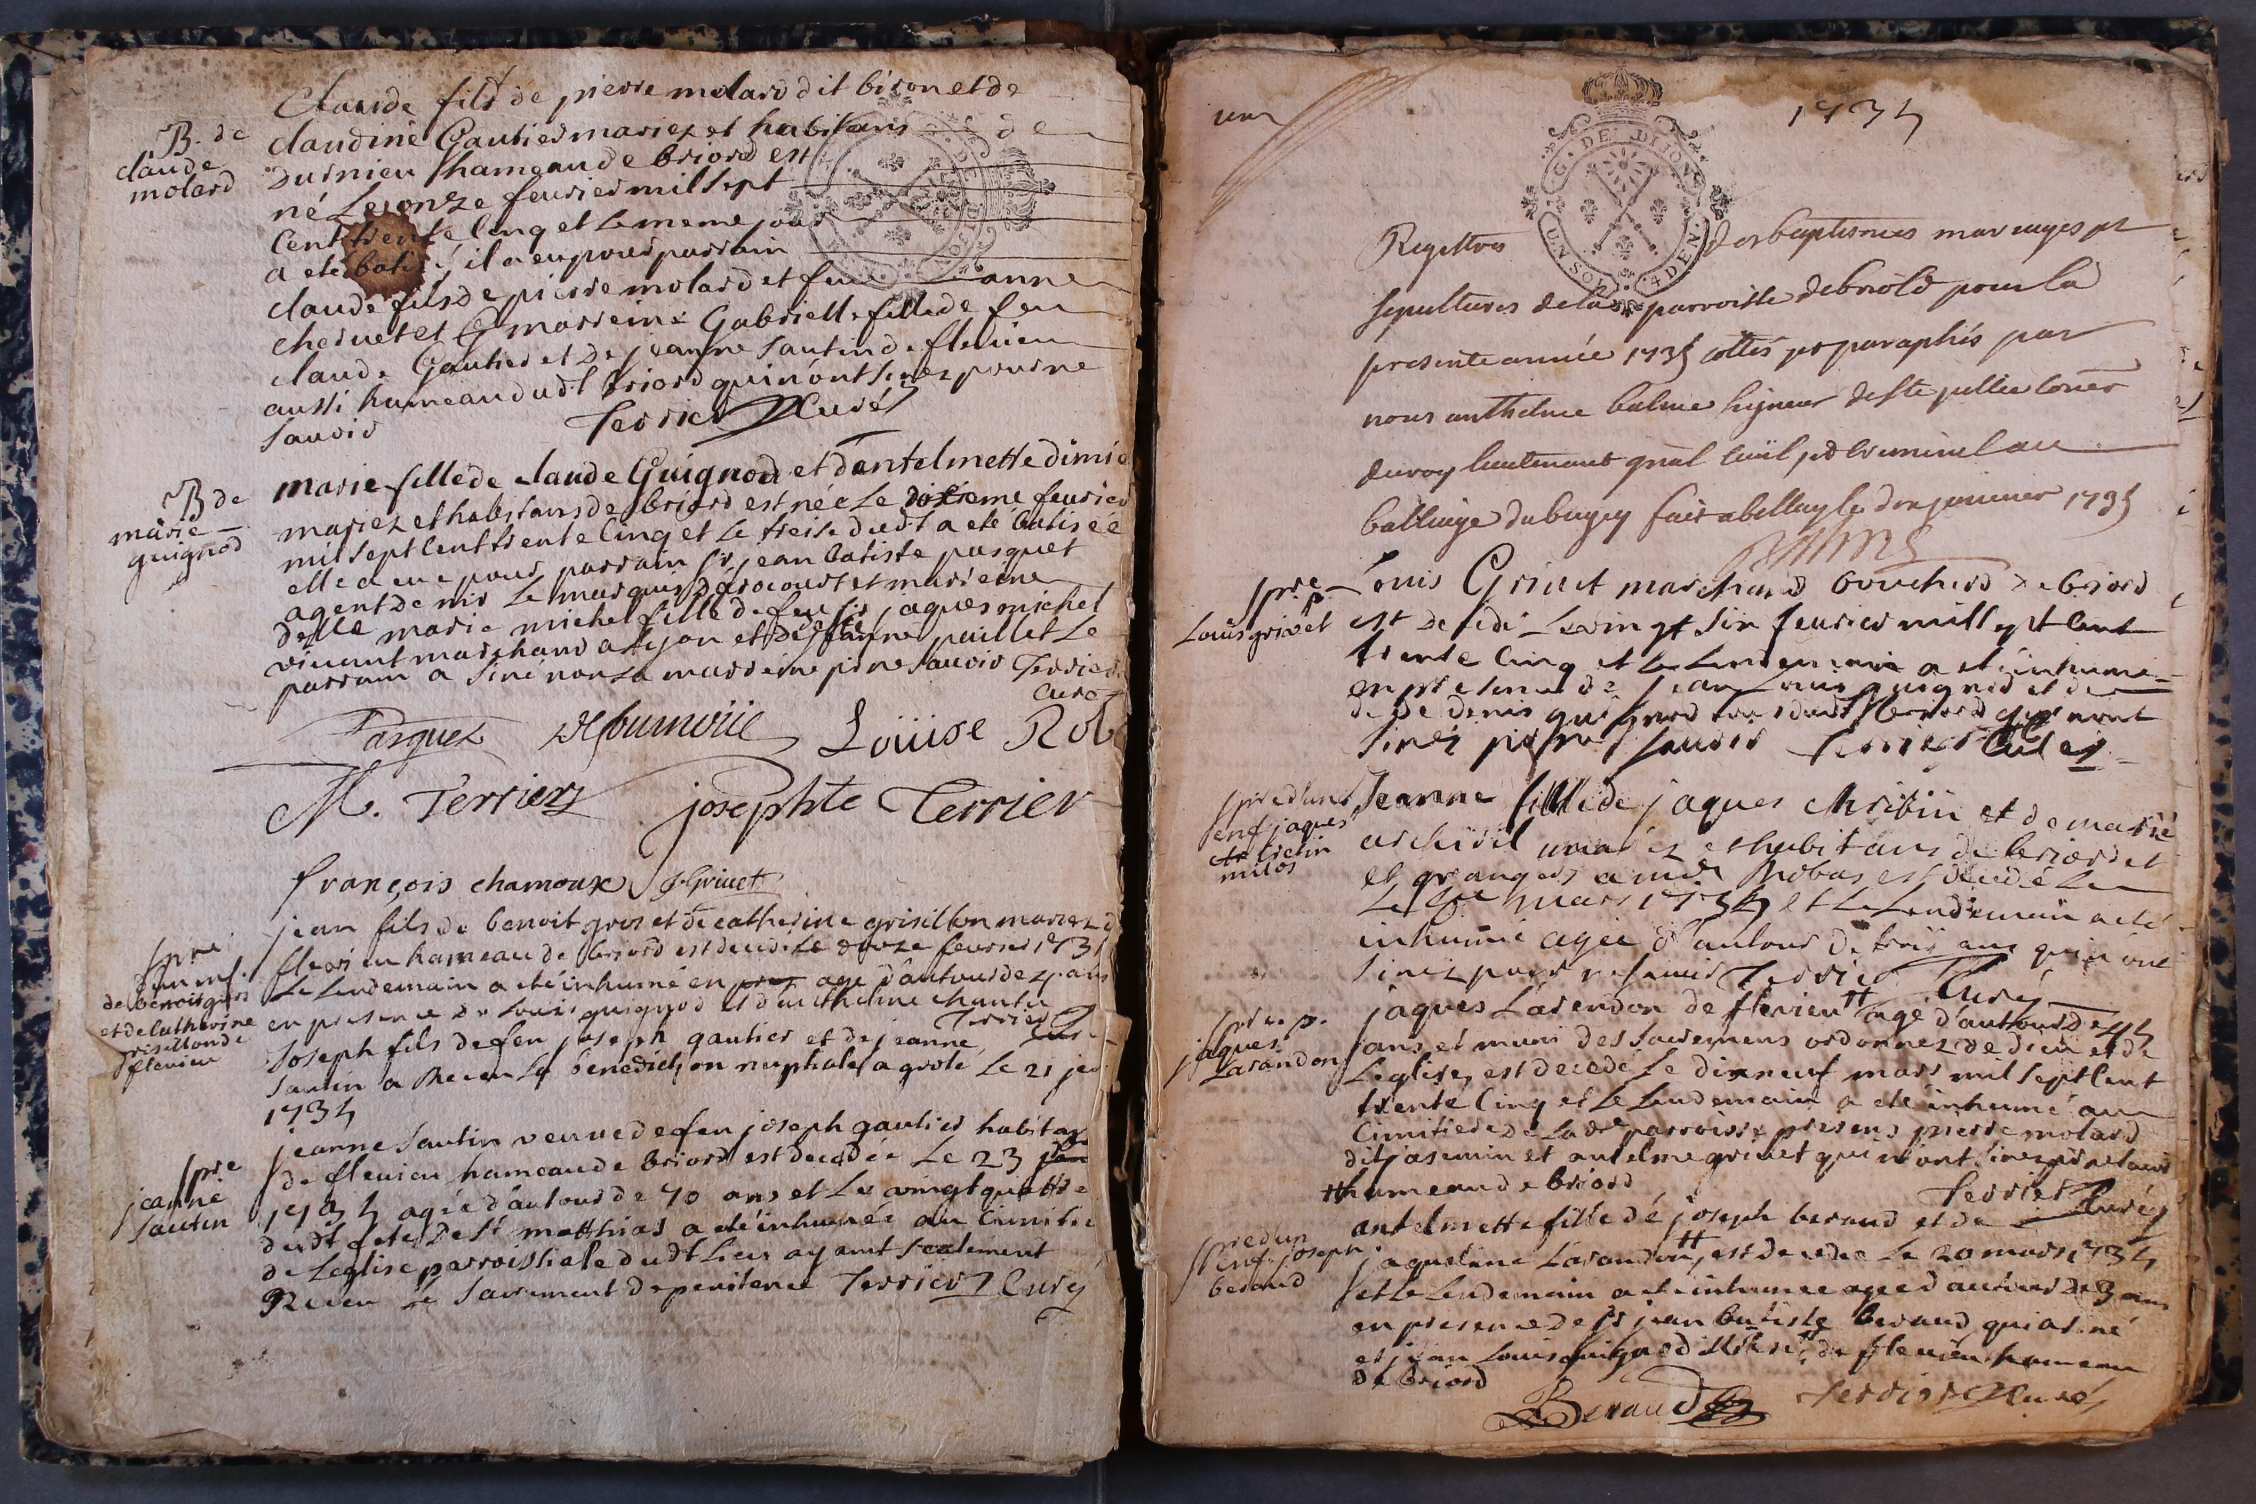 Claude fils de pierre molard dit bison et de
B. de
claude
molard
claudine Gautier mariez et habitans de
dusnieu hameau de briord est
né Le onze feurier mil sept
Cent trente Cinq et Le meme jour
a eté batisé, il a eu pour parrain
claude fils de pierre molard et feue anne
cheruet et marreine Gabrielle fille de feu
claude Gautier et De jeanne Sautin de flevieu
aussi hameau dudt briord qui nont sinez pour ne
Sauoir
Terrier Curé
B de
marie
guignod
marie fille de claude Guignod et dantelmette dimie
mariez et habitans de briord est née Le dixieme feurier
mil sept Cent trente Cinq et Le treise dudt a eté batisée
elle a eu pour parrain Sr jean batiste pasquet
agent de mr Le marquis et marreine
delle marie michel fille de feu sr jaques michel
viuant marchand a Lyon et de jeanne paillet Le
parrain a siné non La marreine pr ne Sauoir Terrier
Curé
Pasquet Louise Rob
M. Terrier josephte Terrier
françois chamoux J. Griuet
Spre
d'un enf.
de benoit gros
et de Catherine
grisillon de
flevieu
jean fils de benoit gros et de catherine grisillon mariez d
flevieu hameau de briord est decedé Le douze feurier 173
Le Lendemain a eté inhumé en agé d'autour de 4 ans
en presence de Louis guignod et d'anthelme chantu
Terrier Curé
Joseph fils de feu joseph gautier et de jeanne
Sautin a Receu La benediction nuptiale a grole Le 21
1735
Spre
jeanne
Sautin
jeanne Sautin veuue de feu joseph gautier habitan
de flevieu hameau de briord est decedée Le 23
1735 agée d'autour de 70 ans et Le vingt quattre
dudt fete De St matthias a eté inhumée au Cimitie
de Leglise parroissiale dudt Lieu ayant Seulement
Receu Le Sacrement de penitence Terrier Curé
un
1735
G. DE DIJON
UN SOL 4 DEN.
Registres des baptesmes mariages et
sepultures de la parroisse de briord pour la
presente année 1735 cottés et paraphés par
nous anthelme balme seigneur de ste jullie coner
du roy lieutenant gnal ciuil et criminel au
balliage du bugey fait a belley le janvier 1735
Balme
Spre p.
Louis griuet
Louis Griuet marchand boucher de briord
est decedé Le vingt six feurier mil sept Cent
trente Cinq et Le Lendemain a eté inhumé
en presence de jean Louis guignod et de
de denis guignod tous dudt briord qui n'ont
sinez pr ne sauoir Terrier Curé
Spre d'un
enf jaques
cretin
milos
Jeanne fille de jaques et de marie
mariez et habitans de briord et
et grangers a mr est decedé Le
Le mars 1735 et Le Lendemain a eté
inhumé agée d'autour de trois ans qui n'ont
sinez pour ne sauoir Terrier Curé
Spre p.
jaques
Larandon
jaques Larendon de flevieu # agé d'autour de 45
ans et muni des Sacremens ordonnez de dieu et de
Leglise, est decedé Le dixneuf mars mil sept Cent
trente Cinq et Le Lendemain a eté inhumé au
Cimitiere de Ladte parroisse presens pierre molard
dit jasemin et antelme griuet qui n'ont sinez pr ne sauoir
# hameau de briord
Terrier Curé
Spre d'un
enf. joseph
beraud
antelmette fille de joseph beraud et de
jaqueline Larandon #, est decedée Le 20 mars 1735
et Le Lendemain a eté inhumée agée d'autour de 3 ans
en presence de Sr jean batiste beraud qui a siné
et jean Louis guignod # de flevieu hameau
de briord
Beraud Terrier Curé